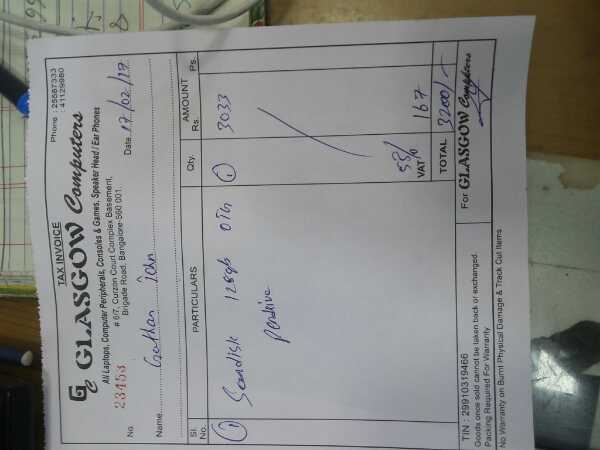 TAX INVOICE
Phone : 25587333
41129980
GC GLASGOW Computers
All Laptops, Computer Peripherals, Consoles & Games, Speaker Head / Ear Phones
# 6/7, Curzon Court Complex Basement,
Brigade Road, Bangalore-560 001.
No. 23453
Date 17/02/17
Name John
Sl. No. PARTICULARS Qty. AMOUNT
Rs. Ps.
1 Sandisk 128gb OTG 1 3033
pendrive
5.5%
VAT 167
TOTAL 3200/-
TIN : 29910319466
Goods once sold cannot be taken back or exchanged.
Packing Required For Warranty
No Warranty on Burnt Physical Damage & Track Cut Items
For GLASGOW Computers